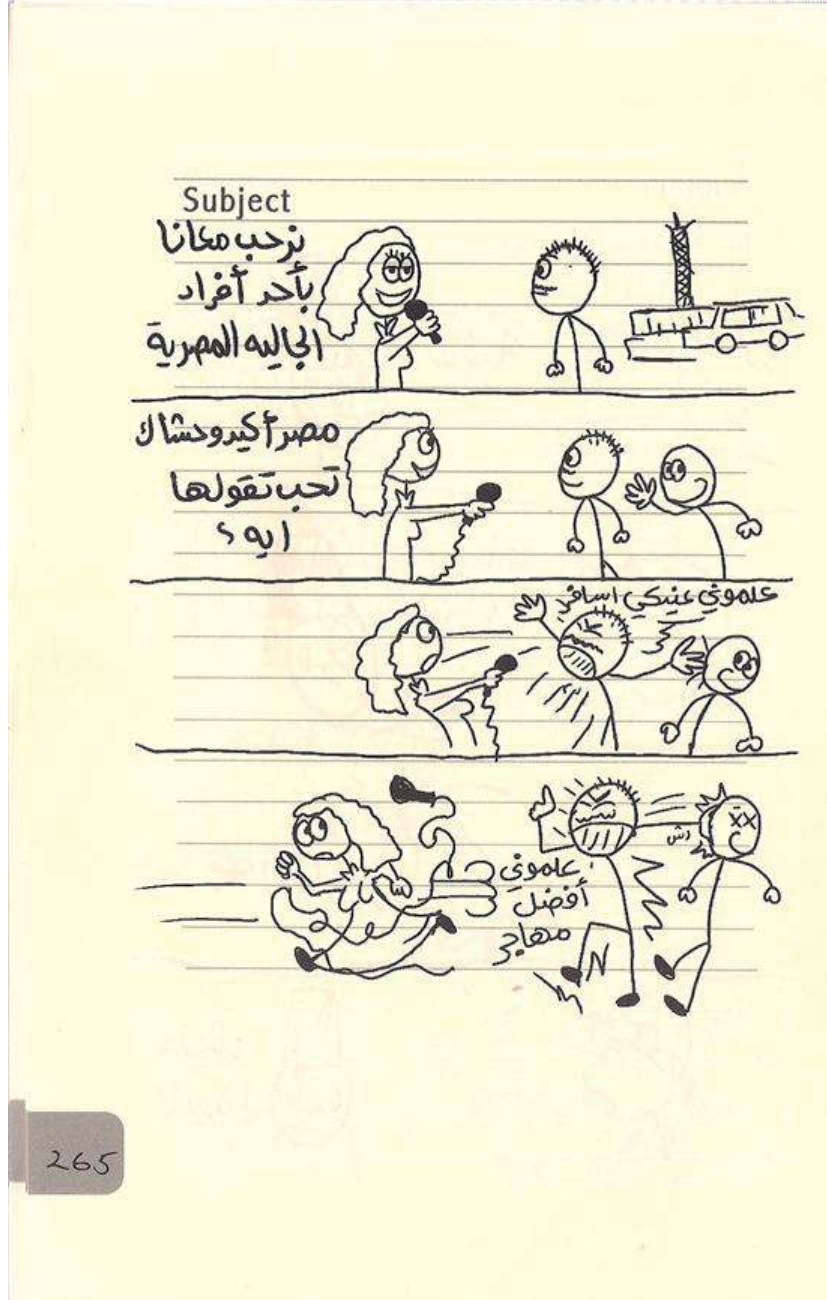 Subject
نرحب معانا
بأحد أفراد
الجاليه المصرية
مصر أكيد وحشاك
تحب تقولها
ايه ؟
علموني عنيكي اسافر
دش
علموني
أفضل
مهاجر
265